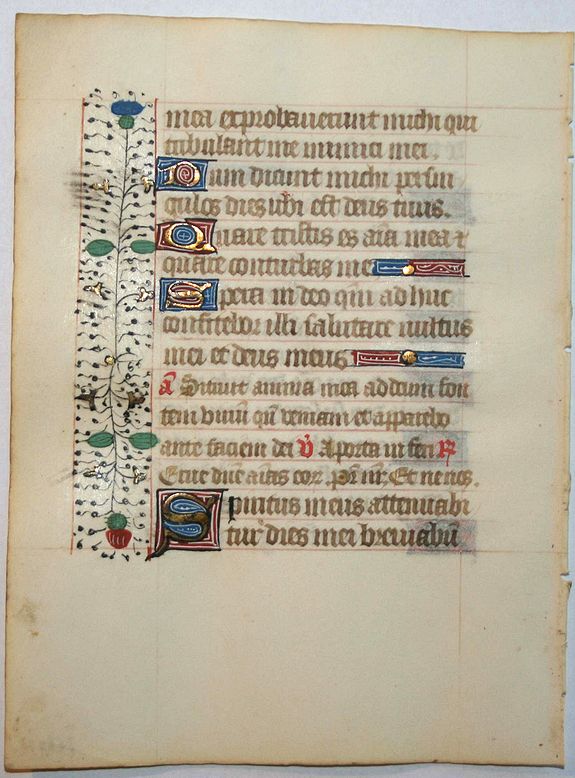 mea exprobauerunt michi qui
tribulant me inimici mei.
Dum dicunt michi per sin
gulos dies ubi est deus tuus.
Quare tristis es aīa mea ⁊
quare conturbas me
Spera in deo qm̄ ad huc
confitebor illi salutare uultus
mei et deus meus
a Sitiuit anima mea ad deum fon
tem uiuū qn̄ ueniam et apparebo
ante faciem dei V̄ A porta in feri R
Erue dn̄e aīas eoꝝ. Pr̄ nr̄. Et ne nos.
Spiritus meus attenuabi
tur dies mei breuiabū